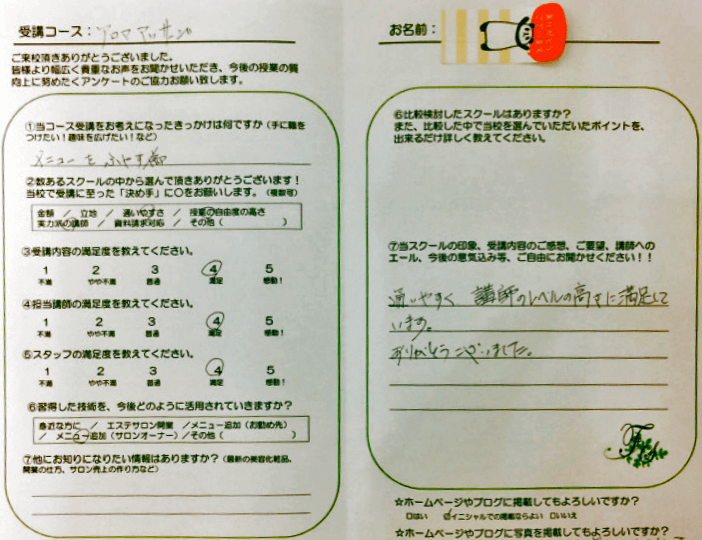 受講コース：アロマアッサンジ
ご来校頂きありがとうございました。
皆様より幅広く貴重なお声をお聞かせいただき、今後の授業の質
向上に努めたくアンケートのご協力お願い致します。
①当コース受講をお考えになったきっかけは何ですか（手に職を
つけたい！趣味を広げたい！など）
メニューをふやす為
②数あるスクールの中から選んで頂きありがとうございます！
当校で受講に至った「決め手」に〇をお願いします。（複数可）
金額 ／ 立地 ／ 通いやすさ ／ 授業の自由度の高さ
実力派の講師 ／ 資料請求対応 ／ その他（ ）
③受講内容の満足度を教えてください。
1 2 3 4 5
不満 やや不満 普通 満足 感動！
④担当講師の満足度を教えてください。
1 2 3 4 5
不満 やや不満 普通 満足 感動！
⑤スタッフの満足度を教えてください。
1 2 3 4 5
不満 やや不満 普通 満足 感動！
⑥習得した技術を、今後どのように活用されていきますか？
身近な方に ／ エステサロン開業 ／メニュー追加（お勤め先）
／ メニュー追加（サロンオーナー）／その他（ ）
⑦他にお知りになりたい情報はありますか？（最新の美容化粧品、
開業の仕方、サロン売上の作り方など）
お名前：
⑥比較検討したスクールはありますか？
また、比較した中で当校を選んでいただいたポイントを、
出来るだけ詳しく教えてください。
⑦当スクールの印象、受講内容のご感想、ご要望、講師への
エール、今後の意気込み等、ご自由にお聞かせください！！
通いやすく 講師のレベルの高さに満足して
います。
ありがとうございました。
☆ホームページやブログに掲載してもよろしいですか？
□はい ☑イニシャルでの掲載ならよい □いいえ
☆ホームページやブログに写真を掲載してもよろしいですか？